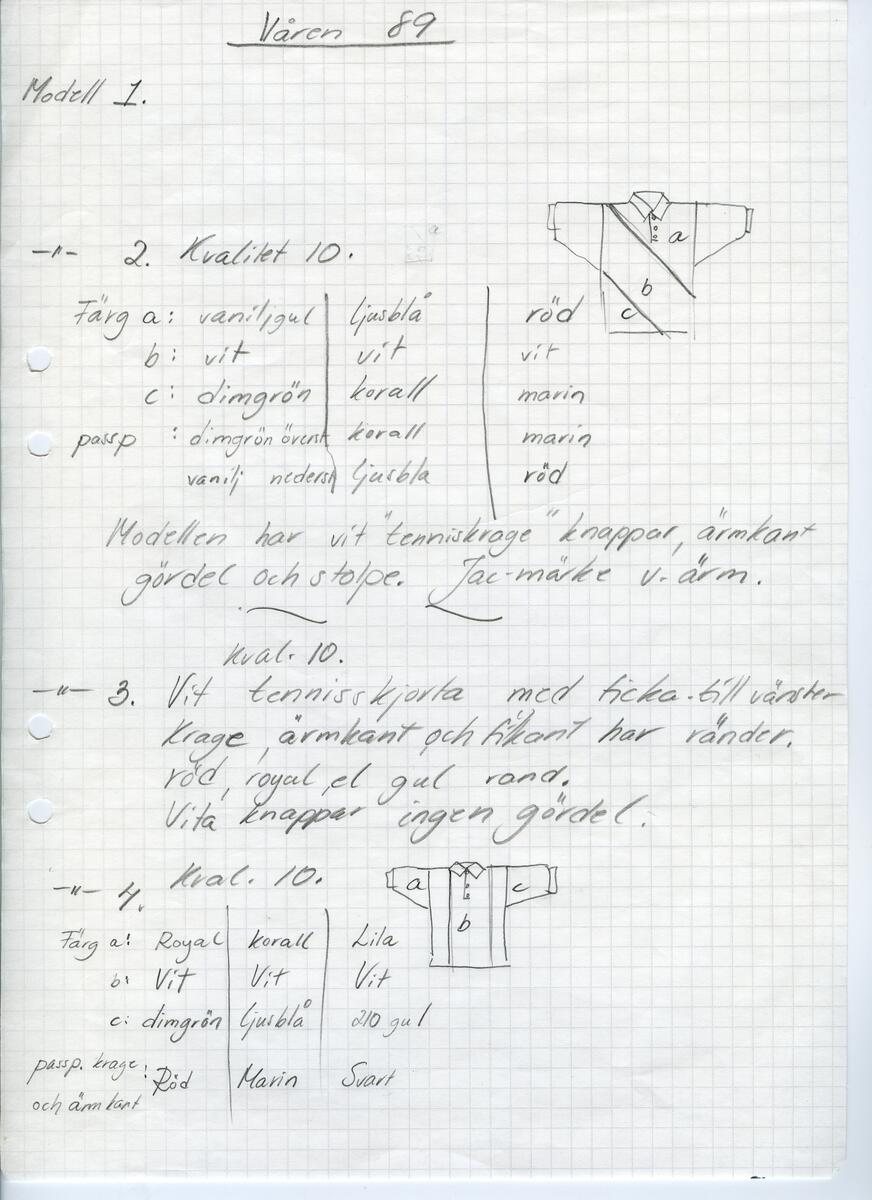 Våren 89
Modell 1.
a
-"- 2. Kvalitet 10.
b
c
Färg a: vaniljgul ljusblå röd
b: vit vit vit
c: dimgrön korall marin
passp : dimgrön överst korall marin
vanilj nederst ljusblå röd
Modellen har vit "tenniskrage" knappar, ärmkant
gördel och stolpe. Jac-märke v. ärm.
Kval. 10.
-"- 3. Vit tennisskjorta med ficka till vänster
Krage, ärmkant och fikant har ränder.
röd, royal, el gul rand.
Vita knappar ingen gördel.
-"- 4. Kval. 10.
a c
b
Färg a: Royal korall Lila
b: Vit Vit Vit
c: dimgrön ljusblå 210 gul
passp. krage : Röd Marin Svart
och ärmkant